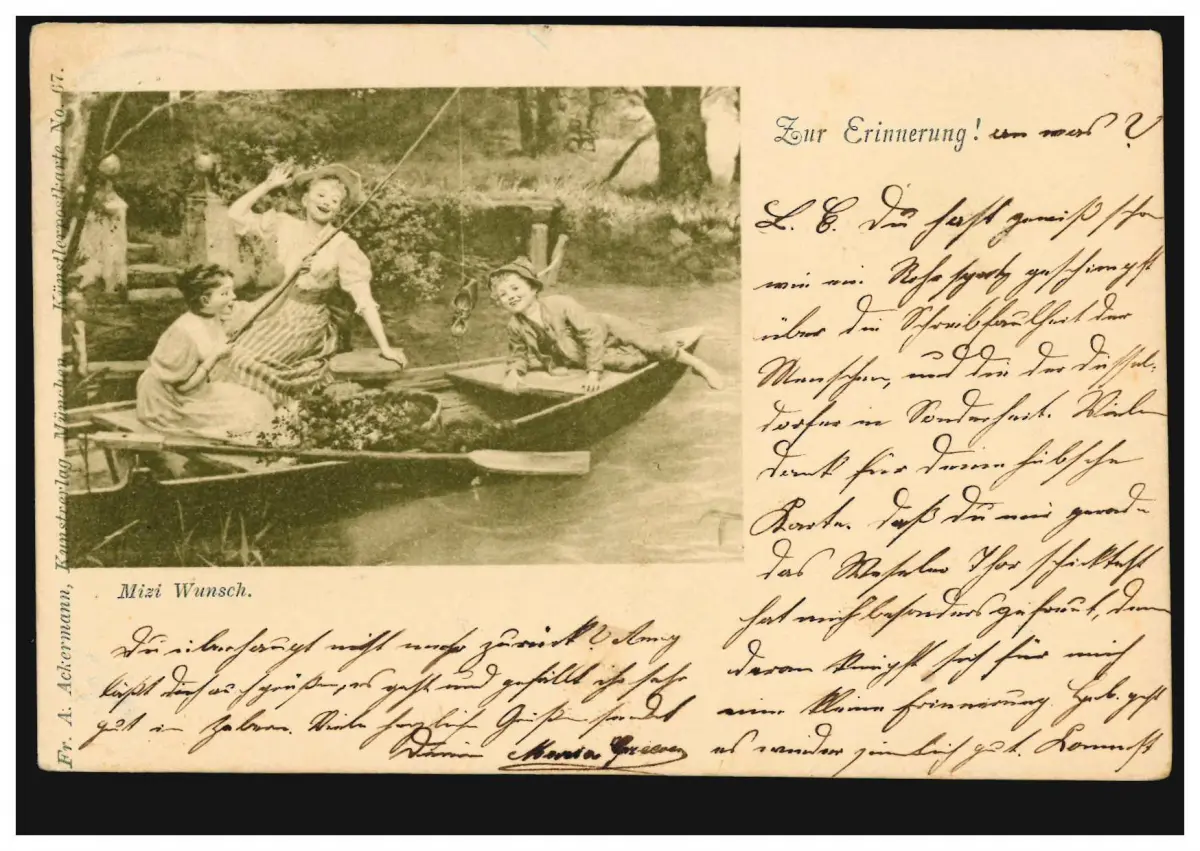 Fr. A. Ackermann, Kunstverlag München. Künstlerpostkarte No. 67.
Zur Erinnerung! an was?
L. E. Du hast gewiß schon
wie ein Rohrspatz geschimpft
über die Schreibfaulheit der
Menschen, und die der Düssel-
dorfer in Sonderheit. Vielen
Dank für Deine hübsche
Karte. daß Du mir gerade
das Weseler Thor schicktest
hat mich besonders gefreut, denn
daran knüpft sich für mich
eine kleine Erinnerung. geht
es wieder ziemlich gut. Kommst
Mizi Wunsch.
Du überhaupt nicht mehr zurück? Anny
läßt Dich auch grüßen, es geht und gefällt ihr sehr
gut in Zabern. Viele herzliche Grüße sendet
Deine Maria